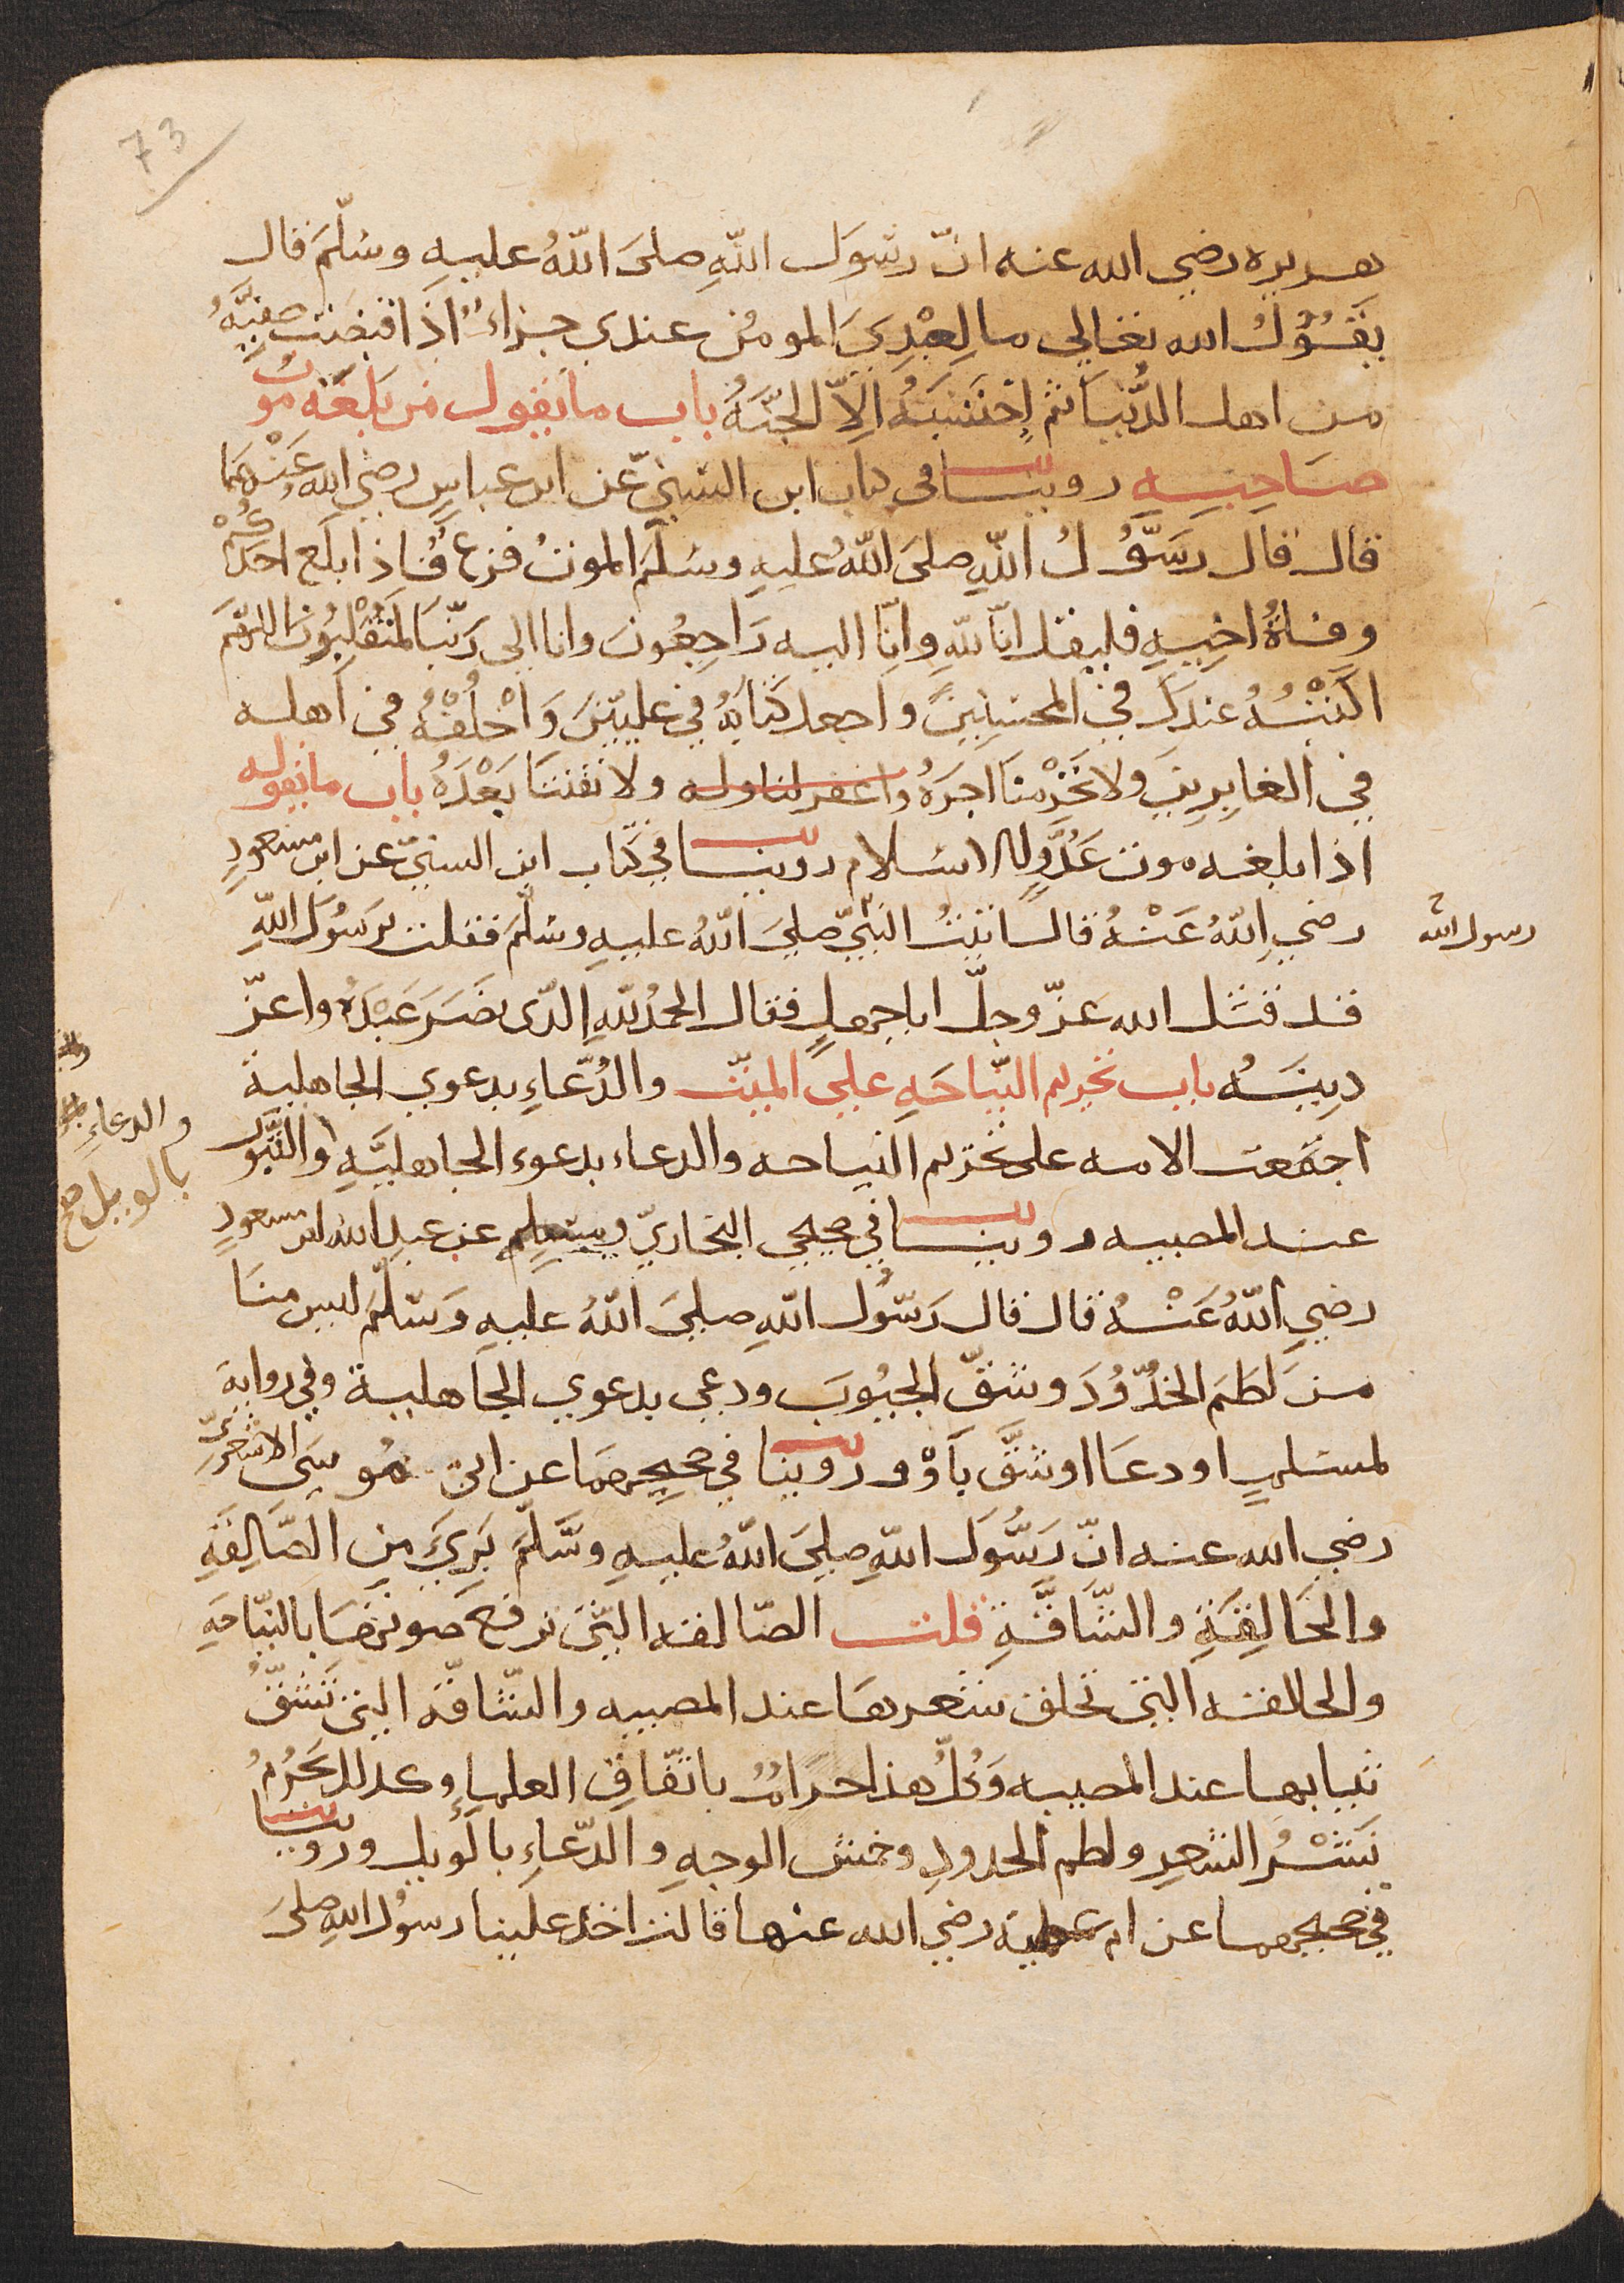 73
هريره رضي الله عنه انّ رسَول اللّهِ صلىَ اللّهُ عليهِ وسَلّمَ قال
يَقُوْلُ الله تعالي ما لِعَبْدِيَ المومن عندي جزاءٌ اذَا قبضت صفيَّهُ
من اهل الدُّنيا ثم اِحتَسَبَهُ الِاّ الجنَّهُ باب ما يقول من بَلغَه موت
صَاحِبِهِ روينا في كتاب ابن السّنيّ عن ابن عباسٍ رضي الله عَنْهمَا
قال قال رسَوُلُ اللّهِ صلىَ اللّهُ عليهِ وسَلمَ الموتُ فزع فاذا بلغ احَدَكُمْ
وفاةُ اخِيهِ فليقل انّا للّهِ وانّا اليه رَاجِعُونَ وانا الى رَبّنَا لمنُقْلِبُونَ اللّهمَ
اكتبْهُ عندكَ في المحسِنِينَ واجعل كتابَهُ في عليّينَ وَاخْلُفْهُ في اهله
في الغابِرِينَ ولا تَحْرِمْنَا اجرَهُ واغفر لنا وله ولا تفتنَا بَعْدَهُ باب ما يقوله
اذا بلغه موت عَدُوِّ الاسلام روينا في كتاب ابن السنيّ عن ابن مسعودٍ
رضي اللّهُ عَنْهُ قال اتيتُ النبيّ صلىَ اللّهُ عليهِ وسَلّمَ فقلت يرَسُولَ اللّهِ
رسول الله
قد قتل الله عزّ وجلّ اباجهلٍ فقال الحمدُ للّهِ الّذي نصَرَ عَبْدَهُ واعزّ
دِينَهُ باب تحريم النّياحَهِ على الميّت والدُّعاءِ بدعوي الجاهلية
اجتمَعت الامه على تحريم النياحه والدعاء بدعوى الجاهليَّهِ والثّبُور
والدعاءِ
بالويل صح
عند المصيبه روينا في صحيحي البخاريّ ومسلمٍ عن عبد الله ابن مسعودٍ
رضي اللّهُ عَنْهُ قال قال رَسُول اللّهِ صلىَ اللّهُ عليهِ وَسَلّمَ ليس منَا
منَ لطَمَ الخدُوُدَ وشقّ الجيُوبَ ودعى بدعوي الجاهلية وفي رواية
لمسلمٍ او دعَا او شقَّ باَوْ وروينا في صحيحِهمَا عن ابى مُوسَى الاشعَريّ
رضي الله عنه انّ رَسُولَ اللّهِ صلىَ اللّهُ عليهِ وسَلّمَ بَرِيَ من الصّالِقَهِ
والحَالِقَةِ والشّاقّةِ قلت الصّالقه التّى ترفع صوتهَا بالنيّاحَهِ
والحالقه التى تحلق شعرهَا عند المصيبه والشّاقّه التى تَشُقُّ
ثيابها عند المصيبه وَكُلُّ هذا حرامٌ باتّفَاقِ العلماءِ وكذلك يَحْرُمُ
نَشْرُ الشعرِ ولطم الخدودِ وخمش الوجهِ والدّعاءِ بالويل وروينا
في صحيحهما عن ام عطيه رضي الله عنها قالت اخذ علينا رسول اللهِ صلىَ